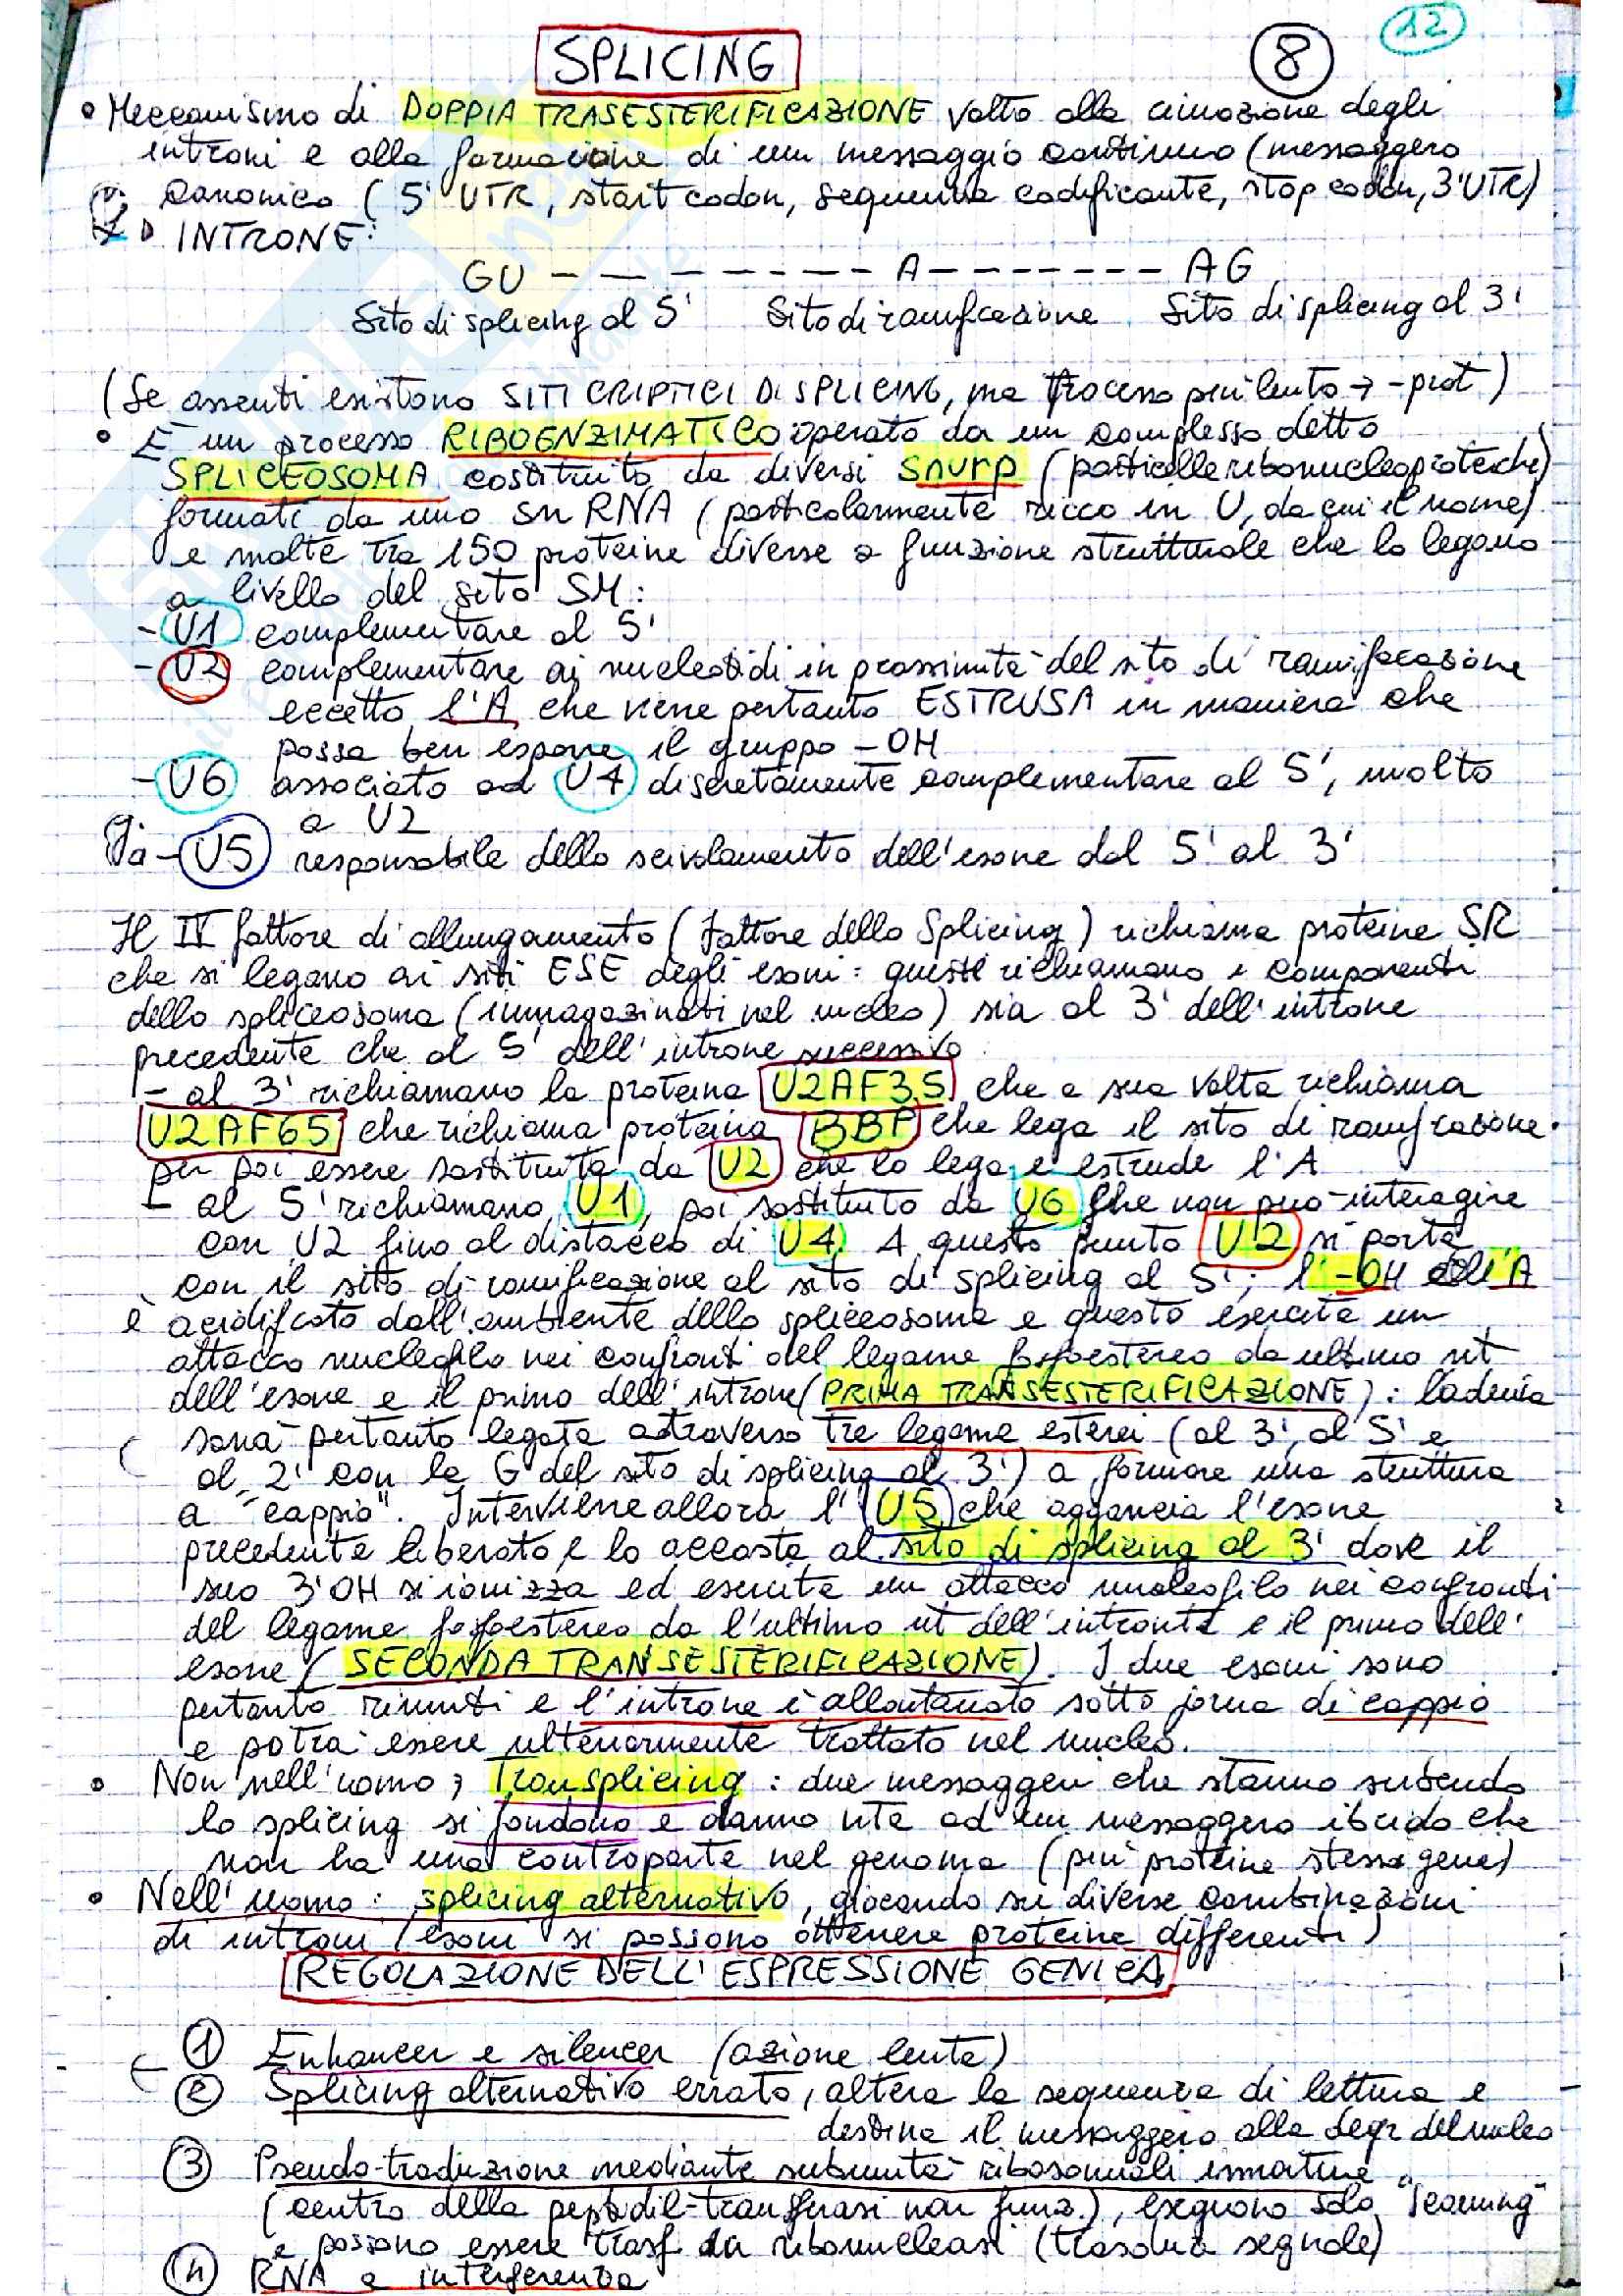 12
8
SPLICING
• Meccanismo di DOPPIA TRASESTERIFICAZIONE volto alla rimozione degli
introni e alla formazione di un messaggio continuo (messaggero
canonico (5' UTR, start codon, sequenza codificante, stop codon, 3'UTR)
INTRONE:
GU – – – – – – – – – A – – – – – – – – AG
Sito di splicing al 5' Sito di ramificazione Sito di splicing al 3'
(Se assenti esistono SITI CRIPTICI DI SPLICING, ma processo più lento → -prot)
• È un processo RIBOENZIMATICO operato da un complesso detto
SPLICEOSOMA costituito da diversi Snurp (particelle ribonucleoproteiche)
formati da uno snRNA (particolarmente ricco in U, da cui il nome)
e molte tra 150 proteine diverse a funzione strutturale che lo legano
a livello del sito SM:
- U1 complementare al 5'
- U2 complementare ai nucleotidi in prossimità del sito di ramificazione
eccetto l'A che viene pertanto ESTRUSA in maniera che
possa ben esporre il gruppo -OH
- U6 associato ad U4 discretamente complementare al 5', molto
a U2
- U5 responsabile dello scivolamento dell'esone dal 5' al 3'
Il IV fattore di allungamento (fattore dello Splicing) richiama proteine SR
che si legano ai siti ESE degli esoni: queste richiamano i componenti
dello spliceosoma (immagazzinati nel nucleo) sia al 3' dell'introne
precedente che al 5' dell'introne successivo
- al 3' richiamano la proteina U2AF35 che a sua volta richiama
U2AF65 che richiama proteina BBP che lega il sito di ramificazione
per poi essere sostituita da U2 che lo lega e estrude l'A
- al 5' richiamano U1, poi sostituito da U6 che non può interagire
con U2 fino al distacco di U4. A questo punto U2 si porta
con il sito di ramificazione al sito di splicing al 5'; l'-OH dell'A
è acidificato dall'ambiente dello spliceosoma e questo esercita un
attacco nucleofilo nei confronti del legame fosfoestereo da ultimo nt
dell'esone e il primo dell'introne (PRIMA TRANSESTERIFICAZIONE): l'adenina
sarà pertanto legata attraverso tre legame esterei (al 3', al 5' e
al 2' con la G del sito di splicing al 3') a formare una struttura
a "cappio". Interviene allora l'U5 che aggancia l'esone
precedente liberato e lo accosta al sito di splicing al 3' dove il
suo 3'OH si ionizza ed esercita un attacco nucleofilo nei confronti
del legame fosfoestereo da l'ultimo nt dell'introne e il primo dell'
esone (SECONDA TRANSESTERIFICAZIONE). I due esoni sono
pertanto riuniti e l'introne è allontanato sotto forma di cappio
e potrà essere ulteriormente trattato nel nucleo.
• Non nell'uomo → Transplicing: due messaggeri che stanno subendo
lo splicing si fondono e danno vita ad un messaggero ibrido che
non ha una controparte nel genoma (più proteine stesso gene)
• Nell'uomo: splicing alternativo, giocando su diverse combinazioni
di introni/esoni si possono ottenere proteine differenti)
REGOLAZIONE DELL'ESPRESSIONE GENICA
① Enhancer e silencer (azione lenta)
② Splicing alternativo errato, altera la sequenza di lettura e
destina il messaggero alla degr del nucleo
③ Pseudo-traduzione mediante subunità ribosomiali immature
(centro della peptidil-transferasi non funz.), eseguono solo "scanning"
e possono essere trasf. da ribonucleasi (trasduz segnale)
④ RNA a interferenza